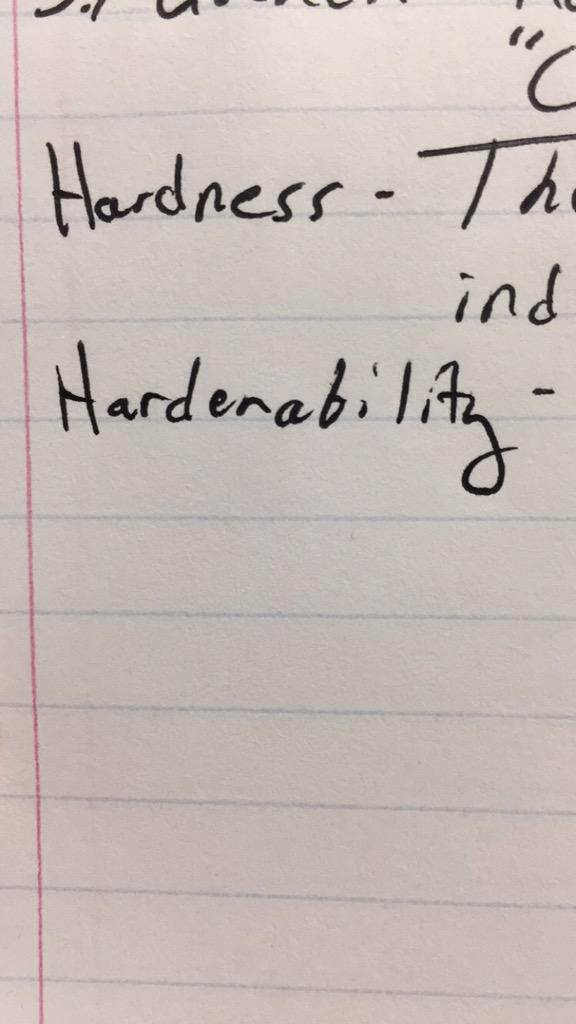 "C
Hardness - The
ind
Hardenability -